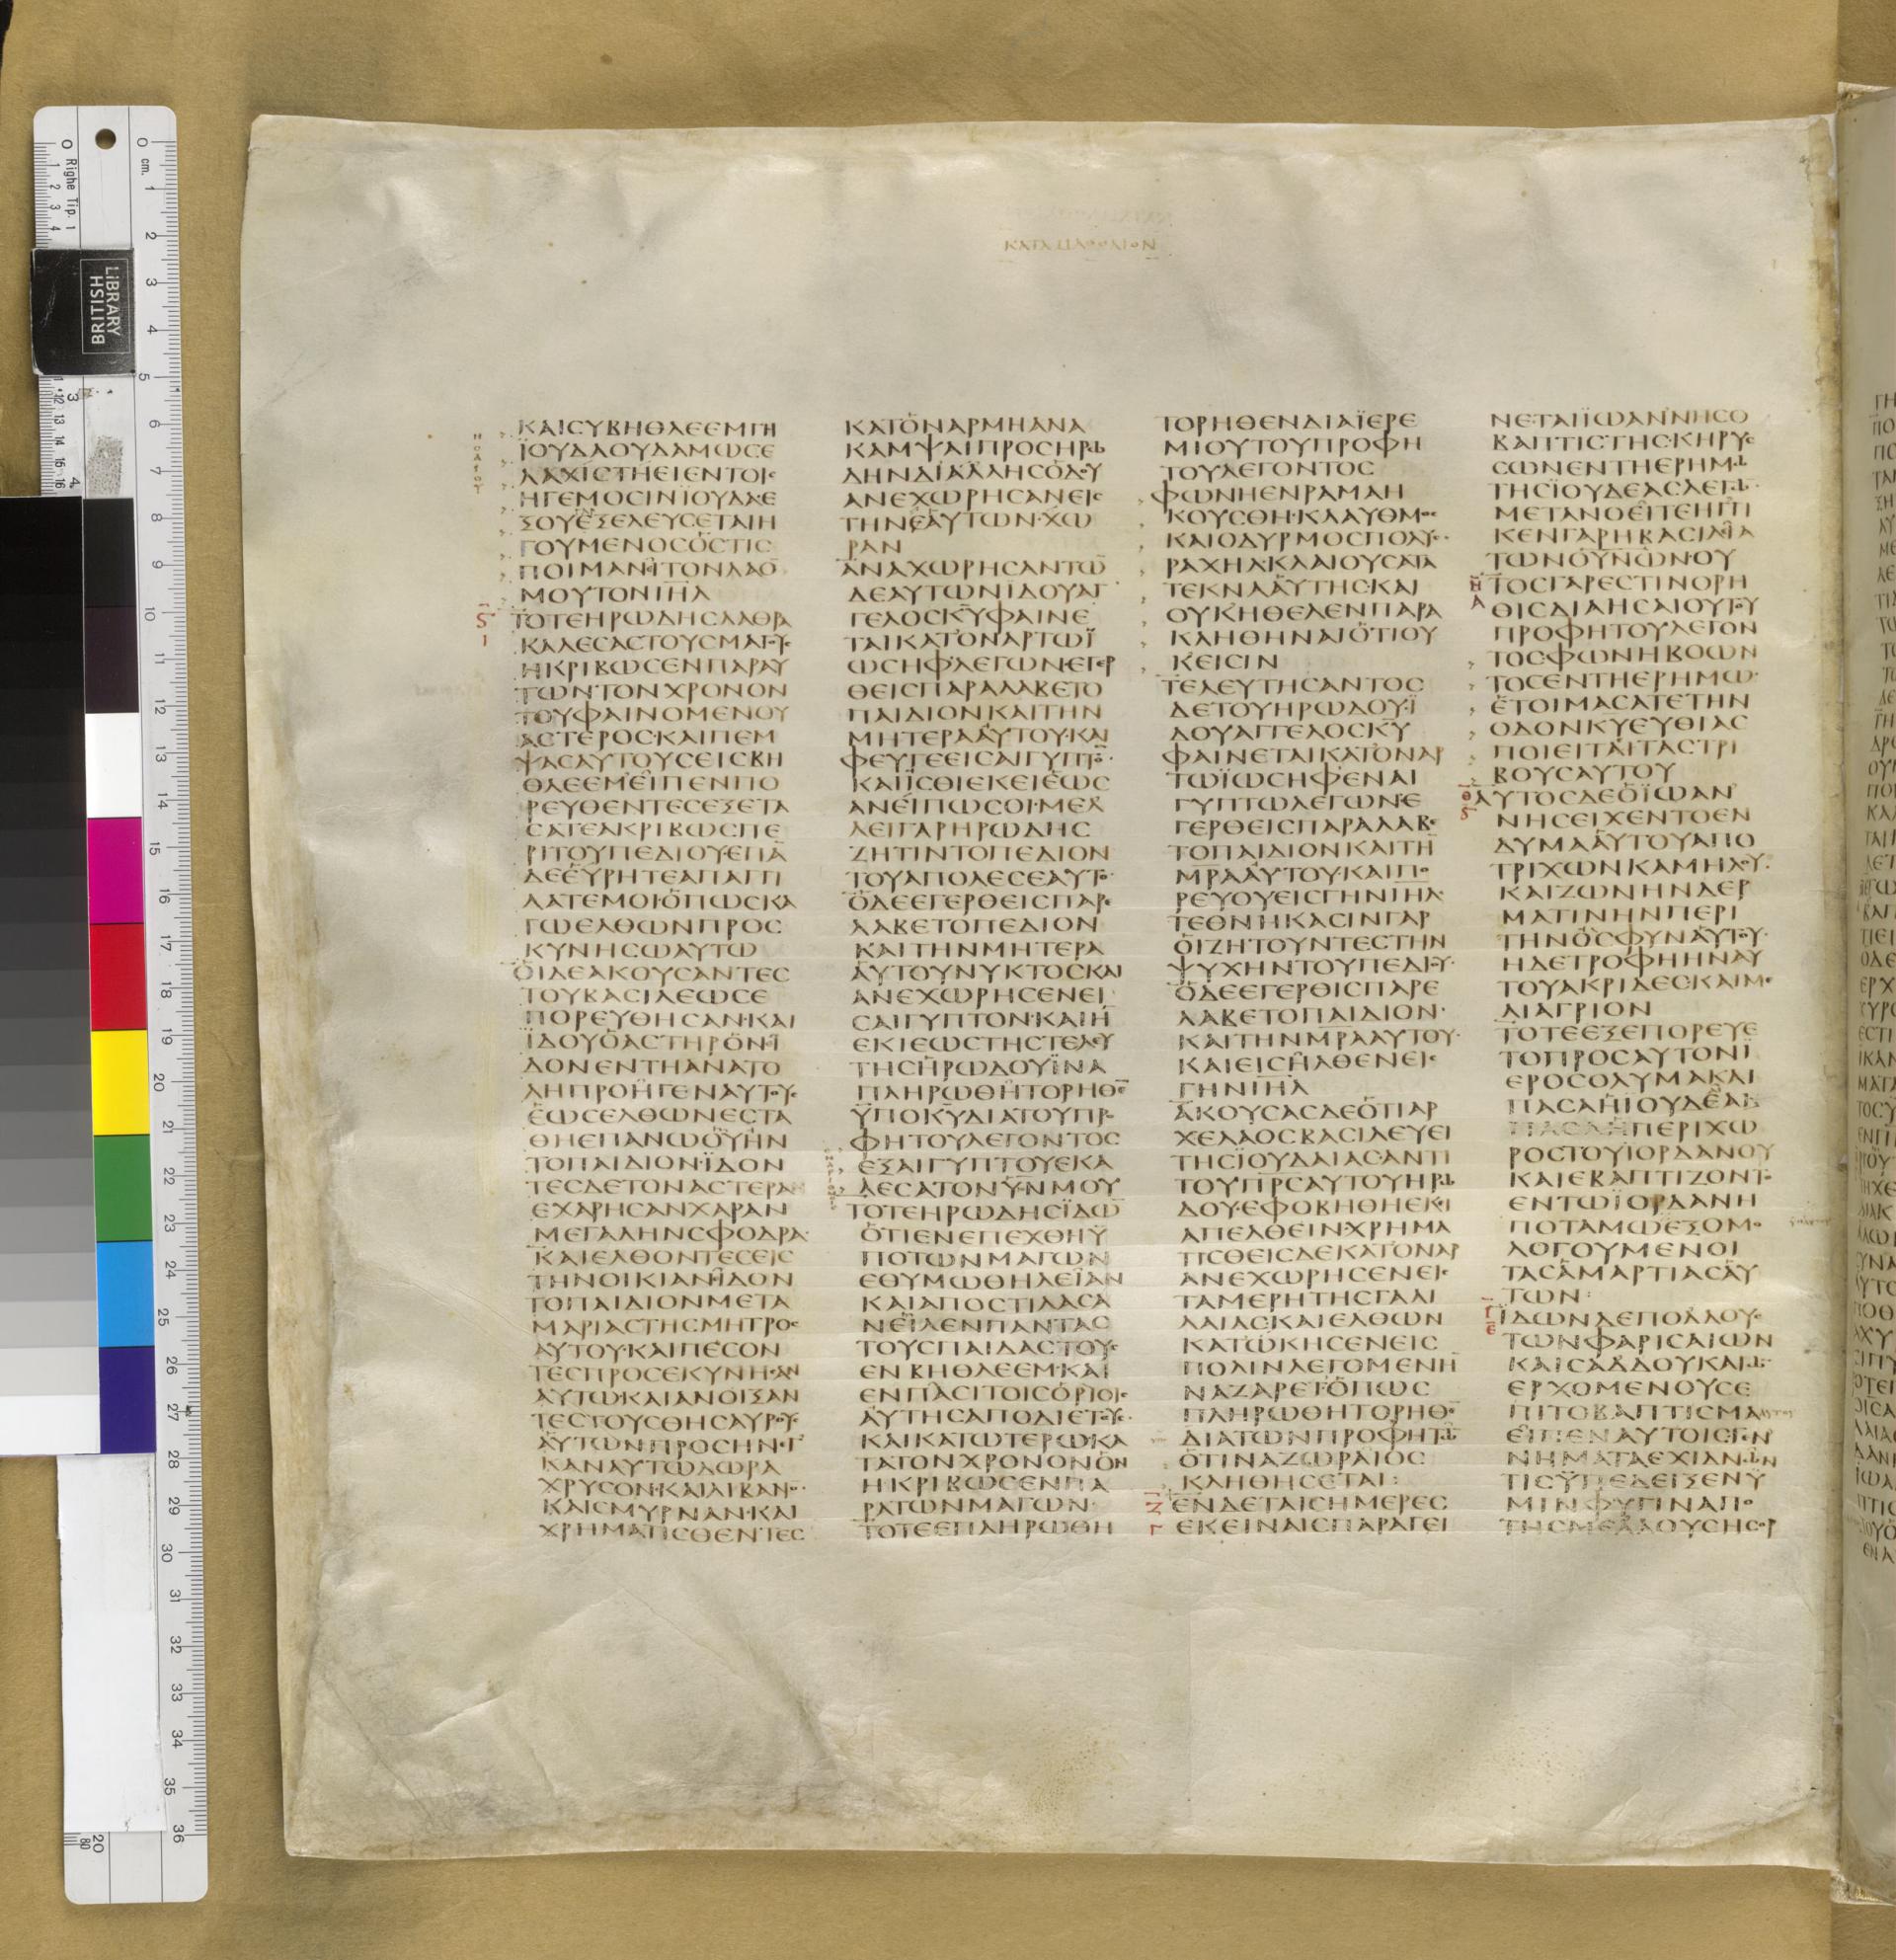 ΚΑΤΑ ΜΑΘΘΑΙΟΝ
ΚΑΙΣΥΒΗΘΛΕΕΜΓΗ
ΪΟΥΔΑΟΥΔΑΜΩΣΕ
ΛΑΧΙΣΤΗΕΙΕΝΤΟΙΣ
ΗΓΕΜΟΣΙΝΪΟΥΔΑΕ
ΞΟΥΕΞΕΛΕΥΣΕΤΑΙΗ
ΓΟΥΜΕΝΟΣΟΣΤΙΣ
ΠΟΙΜΑΝΙΤΟΝΛΑΟ̅
ΜΟΥΤΟΝΙΗΛ
ΤΟΤΕΗΡΩΔΗΣΛΑΘΡΑ
ΚΑΛΕΣΑΣΤΟΥΣΜΑΓΟΥΣ
ΗΚΡΙΒΩΣΕΝΠΑΡΑΥ
ΤΩΝΤΟΝΧΡΟΝΟΝ
ΤΟΥΦΑΙΝΟΜΕΝΟΥ
ΑΣΤΕΡΟΣ·ΚΑΙΠΕΜ
ΨΑΣΑΥΤΟΥΣΕΙΣΒΗ
ΘΛΕΕΜΕΙΠΕΝΠΟ
ΡΕΥΘΕΝΤΕΣΕΞΕΤΑ
ΣΑΤΕΑΚΡΙΒΩΣΠΕ
ΡΙΤΟΥΠΕΔΙΟΥ·ΕΠΑ̅
ΔΕΕΥΡΗΤΕΑΠΑΓΓΙ
ΛΑΤΕΜΟΙΟΠΩΣΚΑ
ΓΩΕΛΘΩΝΠΡΟΣ
ΚΥΝΗΣΩΑΥΤΩ
ΟΙΔΕΑΚΟΥΣΑΝΤΕΣ
ΤΟΥΒΑΣΙΛΕΩΣΕ
ΠΟΡΕΥΘΗΣΑΝ·ΚΑΙ
ΪΔΟΥΟΑΣΤΗΡΟΝ·Ϊ
ΔΟΝΕΝΤΗΑΝΑΤΟ
ΛΗΠΡΟΗΓΕΝΑΥΤΟΥΣ
ΕΩΣΕΛΘΩΝΕΣΤΑ
ΘΗΕΠΑΝΩΟΥΗΝ
ΤΟΠΑΙΔΙΟΝ·ΪΔΟΝ
ΤΕΣΔΕΤΟΝΑΣΤΕΡΑ
ΕΧΑΡΗΣΑΝΧΑΡΑΝ
ΜΕΓΑΛΗΝΣΦΟΔΡΑ·
ΚΑΙΕΛΘΟΝΤΕΣΕΙΣ
ΤΗΝΟΙΚΙΑΝΪΔΟΝ
ΤΟΠΑΙΔΙΟΝΜΕΤΑ
ΜΑΡΙΑΣΤΗΣΜΗΤΡΟΣ
ΑΥΤΟΥ·ΚΑΙΠΕΣΟΝ
ΤΕΣΠΡΟΣΕΚΥΝΗΣΑΝ
ΑΥΤΩ·ΚΑΙΑΝΟΙΞΑΝ
ΤΕΣΤΟΥΣΘΗΣΑΥΡΟΥΣ
ΑΥΤΩΝΠΡΟΣΗΝΕΓ
ΚΑΝΑΥΤΩΔΩΡΑ
ΧΡΥΣΟΝ·ΚΑΙΛΙΒΑΝΟΝ
ΚΑΙΣΜΥΡΝΑΝ·ΚΑΙ
ΧΡΗΜΑΤΙΣΘΕΝΤΕΣ
ΚΑΤΟΝΑΡΜΗΑΝΑ
ΚΑΜΨΑΙΠΡΟΣΗΡΩ
ΔΗΝΔΙΑΛΛΗΣΟΔΟΥ
ΑΝΕΧΩΡΗΣΑΝΕΙΣ
ΤΗΝΕΑΥΤΩΝ·ΧΩ
ΡΑΝ
ΑΝΑΧΩΡΗΣΑΝΤΩ̅
ΔΕΑΥΤΩΝΙΔΟΥΑΓ
ΓΕΛΟΣΚΥΦΑΙΝΕ
ΤΑΙΚΑΤΟΝΑΡΤΩΪ
ΩΣΗΦΛΕΓΩΝ·ΕΓΕΡ
ΘΕΙΣΠΑΡΑΛΑΒΕΤΟ
ΠΑΙΔΙΟΝΚΑΙΤΗΝ
ΜΗΤΕΡΑΑΥΤΟΥ·ΚΑΙ
ΦΕΥΓΕΕΙΣΑΙΓΥΠΤΟ̅·
ΚΑΙΪΣΘΙΕΚΕΙΕΩΣ
ΑΝΕΙΠΩΣΟΙ·ΜΕΛ
ΛΕΙΓΑΡΗΡΩΔΗΣ
ΖΗΤΙΝΤΟΠΕΔΙΟΝ
ΤΟΥΑΠΟΛΕΣΕΑΥΤΟ·
ΟΔΕΕΓΕΡΘΕΙΣΠΑΡΕ
ΛΑΒΕΤΟΠΕΔΙΟΝ
ΚΑΙΤΗΝΜΗΤΕΡΑ
ΑΥΤΟΥΝΥΚΤΟΣΚΑΙ
ΑΝΕΧΩΡΗΣΕΝΕΙ
ΣΑΙΓΥΠΤΟΝ·ΚΑΙΗ̅
ΕΚΙΕΩΣΤΗΣΤΕΛΕΥ
ΤΗΣΗΡΩΔΟΥΪΝΑ
ΠΛΗΡΩΘΗΤΟΡΗΘΕ̅
ΫΠΟΚΥΔΙΑΤΟΥΠΡΟ
ΦΗΤΟΥΛΕΓΟΝΤΟΣ
ΕΞΑΙΓΥΠΤΟΥΕΚΑ
ΛΕΣΑΤΟΝΥ̅Ν̅ΜΟΥ
ΤΟΤΕΗΡΩΔΗΣΪΔΩ̅
ΟΤΙΕΝΕΠΕΧΘΗΫ
ΠΟΤΩΝΜΑΓΩΝ
ΕΘΥΜΩΘΗΛΕΙΑΝ
ΚΑΙΑΠΟΣΤΙΛΑΣΑ
ΝΕΙΛΕΝΠΑΝΤΑΣ
ΤΟΥΣΠΑΙΔΑΣΤΟΥΣ
ΕΝΒΗΘΛΕΕΜ·ΚΑΙ
ΕΝΠΑΣΙΤΟΙΣΟΡΙΟΙΣ
ΑΥΤΗΣΑΠΟΔΙΕΤΟΥΣ·
ΚΑΙΚΑΤΩΤΕΡΩ·ΚΑ
ΤΑΤΟΝΧΡΟΝΟΝΟΝ
ΗΚΡΙΒΩΣΕΝΠΑ
ΡΑΤΩΝΜΑΓΩΝ·
ΤΟΤΕΕΠΛΗΡΩΘΗ
ΤΟΡΗΘΕΝΔΙΑΪΕΡΕ
ΜΙΟΥΤΟΥΠΡΟΦΗ
ΤΟΥΛΕΓΟΝΤΟΣ
ΦΩΝΗΕΝΡΑΜΑΗ
ΚΟΥΣΘΗ·ΚΛΑΥΘΜΟΣ
ΚΑΙΟΔΥΡΜΟΣΠΟΛΥΣ·
ΡΑΧΗΛΚΛΑΙΟΥΣΑΤΑ
ΤΕΚΝΑΑΥΤΗΣ·ΚΑΙ
ΟΥΚΗΘΕΛΕΝΠΑΡΑ
ΚΛΗΘΗΝΑΙΟΤΙΟΥ
ΚΕΙΣΙΝ
ΤΕΛΕΥΤΗΣΑΝΤΟΣ
ΔΕΤΟΥΗΡΩΔΟΥ·Ϊ
ΔΟΥΑΓΓΕΛΟΣΚΥ
ΦΑΙΝΕΤΑΙΚΑΤΟΝΑΡ
ΤΩΪΩΣΗΦΕΝΑΙ
ΓΥΠΤΩΛΕΓΩΝ·Ε
ΓΕΡΘΕΙΣΠΑΡΑΛΑΒΕ
ΤΟΠΑΙΔΙΟΝΚΑΙΤΗ̅
ΜΡΑΑΥΤΟΥ·ΚΑΙΠΟ
ΡΕΥΟΥΕΙΣΓΗΝΙΗΛ·
ΤΕΘΝΗΚΑΣΙΝΓΑΡ
ΟΙΖΗΤΟΥΝΤΕΣΤΗΝ
ΨΥΧΗΝΤΟΥΠΕΔΙΟΥ·
ΟΔΕΕΓΕΡΘΙΣΠΑΡΕ
ΛΑΒΕΤΟΠΑΙΔΙΟΝ·
ΚΑΙΤΗΝΜΡΑΑΥΤΟΥ·
ΚΑΙΕΙΣΗΛΘΕΝΕΙΣ
ΓΗΝΙΗΛ
ΑΚΟΥΣΑΣΔΕΟΤΙΑΡ
ΧΕΛΑΟΣΒΑΣΙΛΕΥΕΙ
ΤΗΣΪΟΥΔΑΙΑΣ·ΑΝΤΙ
ΤΟΥΠΡΣΑΥΤΟΥΗΡΩ
ΔΟΥ·ΕΦΟΒΗΘΗΕΚΙ
ΑΠΕΛΘΕΙΝ·ΧΡΗΜΑ
ΤΙΣΘΕΙΣΔΕΚΑΤΟΝΑΡ
ΑΝΕΧΩΡΗΣΕΝΕΙΣ
ΤΑΜΕΡΗΤΗΣΓΑΛΙ
ΛΑΙΑΣ·ΚΑΙΕΛΘΩΝ
ΚΑΤΩΚΗΣΕΝΕΙΣ
ΠΟΛΙΝΛΕΓΟΜΕΝΗ̅
ΝΑΖΑΡΕΤ·ΟΠΩΣ
ΠΛΗΡΩΘΗΤΟΡΗΘΕ̅
ΔΙΑΤΩΝΠΡΟΦΗΤΩ̅
ΟΤΙΝΑΖΩΡΑΙΟΣ
ΚΛΗΘΗΣΕΤΑΙ:
ΕΝΔΕΤΑΙΣΗΜΕΡΕΣ
ΕΚΕΙΝΑΙΣΠΑΡΑΓΕΙ
ΝΕΤΑΙΪΩΑΝΝΗΣΟ
ΒΑΠΤΙΣΤΗΣ·ΚΗΡΥΣ
ΣΩΝΕΝΤΗΕΡΗΜΩ
ΤΗΣΪΟΥΔΕΑΣΛΕΓΩ̅·
ΜΕΤΑΝΟΕΙΤΕΗΓΓΙ
ΚΕΝΓΑΡΗΒΑΣΙΛΙΑ
ΤΩΝΟΥΝΩΝ·ΟΥ
ΤΟΣΓΑΡΕΣΤΙΝΟΡΗ
ΘΙΣΔΙΑΗΣΑΙΟΥΤΟΥ
ΠΡΟΦΗΤΟΥΛΕΓΟΝ
ΤΟΣΦΩΝΗΒΟΩΝ
ΤΟΣΕΝΤΗΕΡΗΜΩ·
ΕΤΟΙΜΑΣΑΤΕΤΗΝ
ΟΔΟΝΚΥΕΥΘΙΑΣ
ΠΟΙΕΙΤΑΙΤΑΣΤΡΙ
ΒΟΥΣΑΥΤΟΥ
ΑΥΤΟΣΔΕΟΪΩΑΝ
ΝΗΣΕΙΧΕΝΤΟΕΝ
ΔΥΜΑΑΥΤΟΥΑΠΟ
ΤΡΙΧΩΝΚΑΜΗΛΟΥ·
ΚΑΙΖΩΝΗΝΔΕΡ
ΜΑΤΙΝΗΝΠΕΡΙ
ΤΗΝΟΣΦΥΝΑΥΤΟΥ·
ΗΔΕΤΡΟΦΗΗΝΑΥ
ΤΟΥΑΚΡΙΔΕΣ·ΚΑΙΜΕ
ΛΙΑΓΡΙΟΝ
ΤΟΤΕΕΞΕΠΟΡΕΥΕ
ΤΟΠΡΟΣΑΥΤΟΝΪ
ΕΡΟΣΟΛΥΜΑΚΑΙ
ΠΑΣΑΗΪΟΥΔΕΑΚ
ΠΑΣΑΗΠΕΡΙΧΩ
ΡΟΣΤΟΥΪΟΡΔΑΝΟΥ
ΚΑΙΕΒΑΠΤΙΖΟΝΤΟ
ΕΝΤΩΪΟΡΔΑΝΗ
ΠΟΤΑΜΩΕΞΟΜΟ
ΛΟΓΟΥΜΕΝΟΙ
ΤΑΣΑΜΑΡΤΙΑΣΑΥ
ΤΩΝ:
ΪΔΩΝΔΕΠΟΛΛΟΥΣ
ΤΩΝΦΑΡΙΣΑΙΩΝ
ΚΑΙΣΑΔΔΟΥΚΑΙΩ̅
ΕΡΧΟΜΕΝΟΥΣΕ
ΠΙΤΟΒΑΠΤΙΣΜΑ
ΕΙΠΕΝΑΥΤΟΙΣΓΕΝ
ΝΗΜΑΤΑΕΧΙΔΝΩΝ
ΤΙΣΫΠΕΔΕΙΞΕΝΫ
ΜΙΝΦΥΓΙΝΑΠΟ
ΤΗΣΜΕΛΛΟΥΣΗΣΟΡ